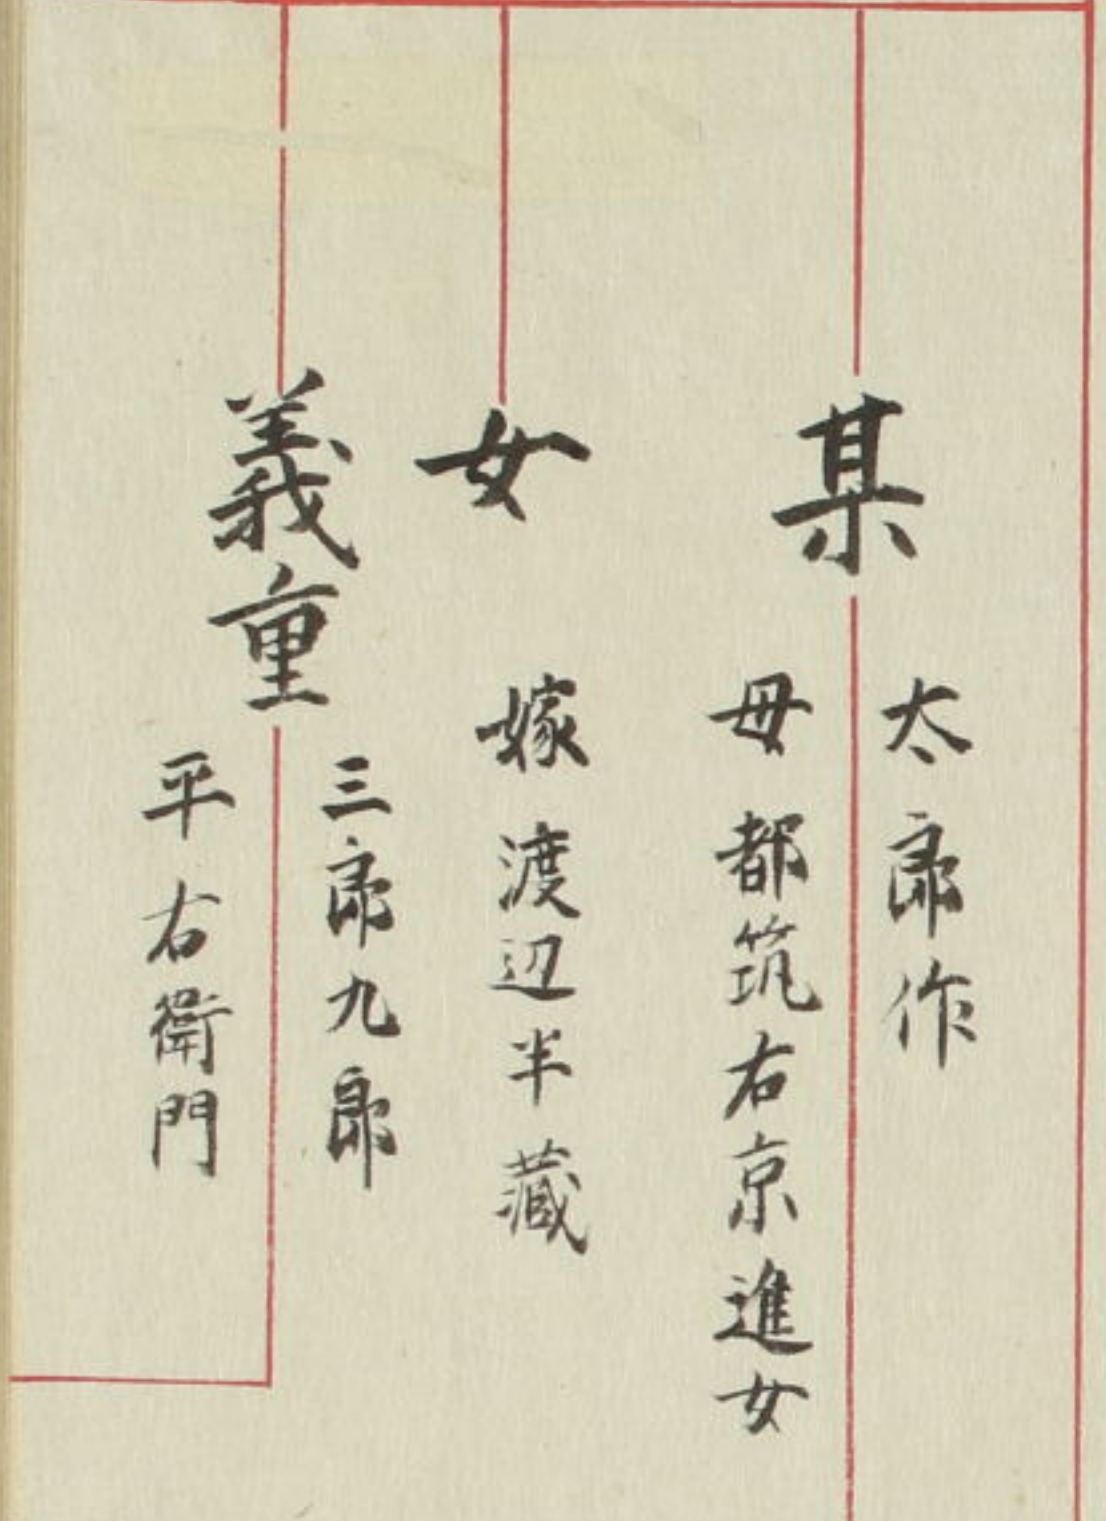 某
太郎作
母都筑右京進女
女
嫁渡辺半蔵
義重
三郎九郎
平右衛門